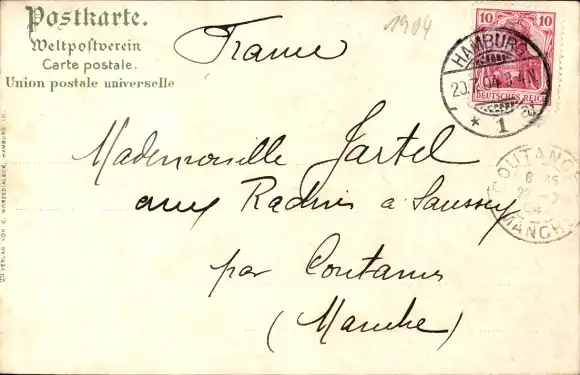 Postkarte.
Weltpostverein
Carte postale.
Union postale universelle
France
1904
10 10
DEUTSCHES REICH
HAMBURG
20.7.04.3-4N
* 1 a
Mademoiselle Jartel
aux Radins à Saussey
par Coutances
(Manche)
COUTANCES
MANCHE